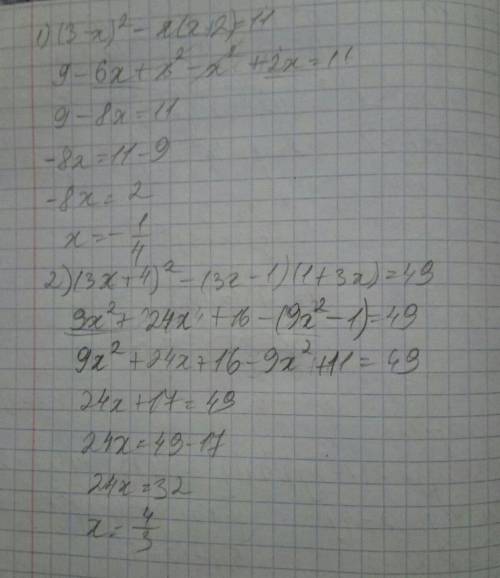 1) (3-x)² - x(x+2)=11
9-6x+x²-x²+2x=11
9-8x=11
-8x=11-9
-8x=2
x=-1/4
2) (3x+4)² - (3x-1)(1+3x)=49
9x²+24x+16-(9x²-1)=49
9x²+24x+16-9x²+11=49
24x+17=49
24x=49-17
24x=32
x=4/3